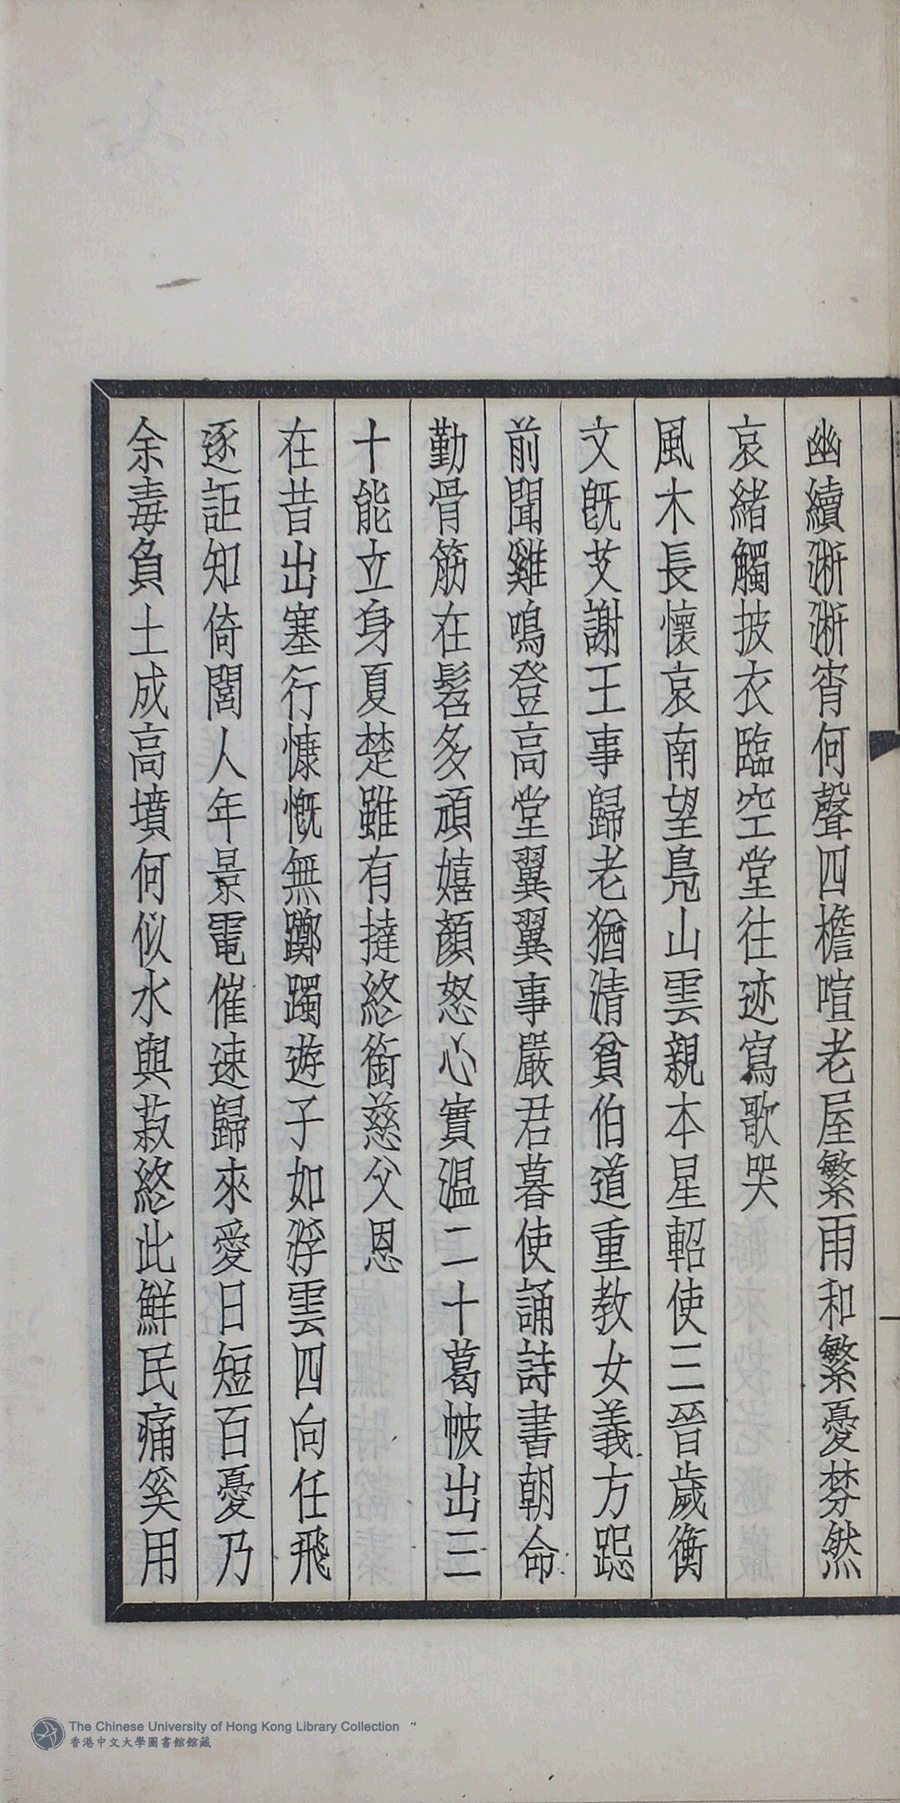 幽續淅淅宵何聲四檐喧老屋繁雨和繁憂棼然
哀緒觸披衣臨空堂往迹寫歌哭
風木長懷哀南望鳧山雲親本星軺使三晉歲衡
文旣艾謝王事歸老猶清貧伯道重教女義方跽
前聞雞鳴登高堂翼翼事嚴君暮使誦詩書朝命
勤骨筋在髫多頑嬉顏怒心實温二十葛帔出三
十能立身夏楚雖有撻終銜慈父恩
在昔出塞行慷慨無躑躅遊子如浮雲四向任飛
逐詎知倚閭人年景電催速歸來愛日短百憂乃
余毒負土成高墳何似水與菽終此鮮民痛奚用
The Chinese University of Hong Kong Library Collection
香港中文大學圖書館館藏